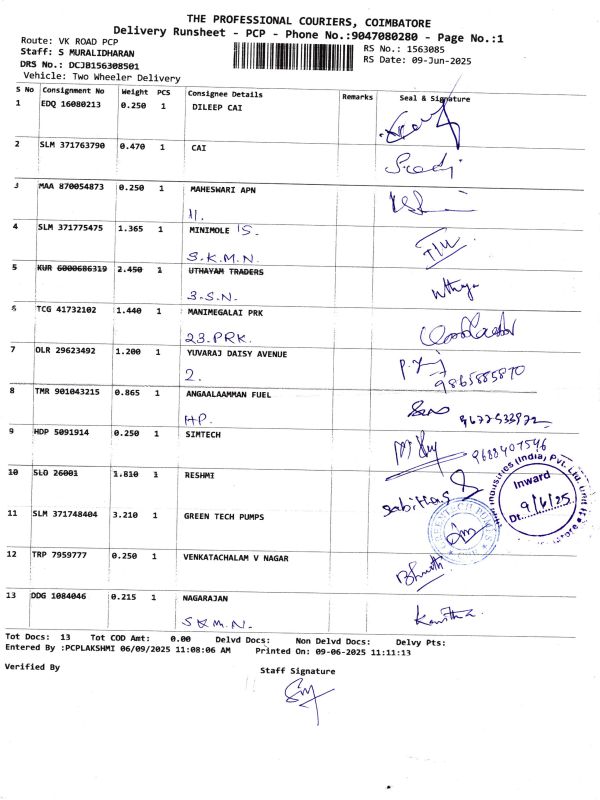 THE PROFESSIONAL COURIERS, COIMBATORE
Delivery Runsheet - PCP - Phone No.:9047080280 - Page No.:1
Route: VK ROAD PCP
Staff: S MURALIDHARAN
DRS No.: DCJB156308501
Vehicle: Two Wheeler Delivery
RS No.: 1563085
RS Date: 09-Jun-2025
S No Consignment No Weight PCS Consignee Details Remarks Seal & Signature
1 EDQ 16080213 0.250 1 DILEEP CAI
2 SLM 371763790 0.470 1 CAI
3 MAA 870054873 0.250 1 MAHESWARI APN
11.
4 SLM 371775475 1.365 1 MINIMOLE 15.
S.K.M.N.
5 KUR 6000686319 2.450 1 UTHAYAM TRADERS
3.S.N.
6 TCG 41732102 1.440 1 MANIMEGALAI PRK
23.PRK.
7 OLR 29623492 1.200 1 YUVARAJ DAISY AVENUE
2.
9865885870
8 TMR 901043215 0.865 1 ANGAALAAMMAN FUEL
HP.
9 HDP 5091914 0.250 1 SIMTECH
9688407546
10 SLO 26001 1.810 1 RESHMI
Industries (India) Pvt. Ltd. Unit II
Inward
Dt. 9/6/25
11 SLM 371748404 3.210 1 GREEN TECH PUMPS
GREENTECH PUMPS
12 TRP 7959777 0.250 1 VENKATACHALAM V NAGAR
13 DDG 1084046 0.215 1 NAGARAJAN
S K M.N.
Kavitha
Tot Docs: 13 Tot COD Amt: 0.00 Delvd Docs: Non Delvd Docs: Delvy Pts:
Entered By :PCPLAKSHMI 06/09/2025 11:08:06 AM Printed On: 09-06-2025 11:11:13
Verified By
Staff Signature